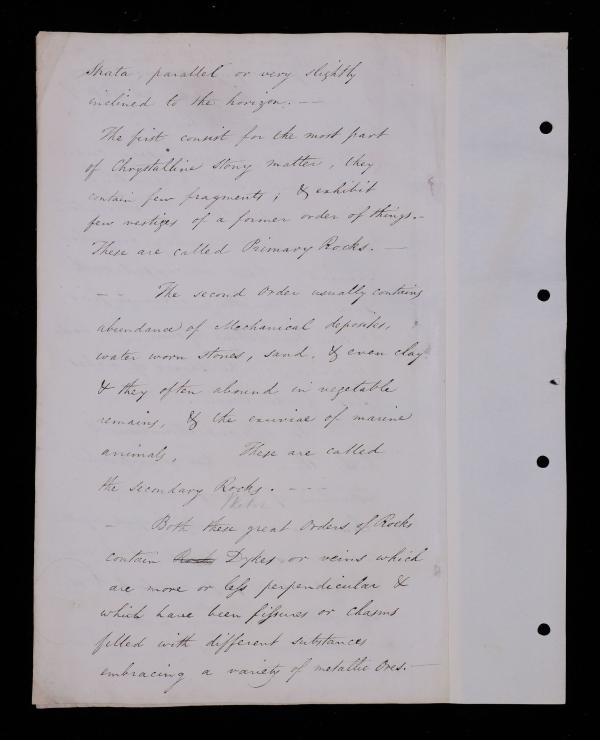 Strata, parallel or very slightly
inclined to the horizon. —
The first consist for the most part
of Chrystalline stony matter, they
contain few fragments; & exhibit
few vestiges of a former order of things. -
These are called Primary Rocks. —
— - The second Order usually contains
abundance of Mechanical deposits,
water worn stones, sand, & even clay
& they often abound in vegetable
remains, & the exuviae of marine
animals, These are called
the secondary Rocks. - - -
- Both these great Orders of Rocks
contain Rock Dykes or veins which
are more or less perpendicular &
which have been fissures or chasms
filled with different substances
embracing a variety of metallic Ores. —